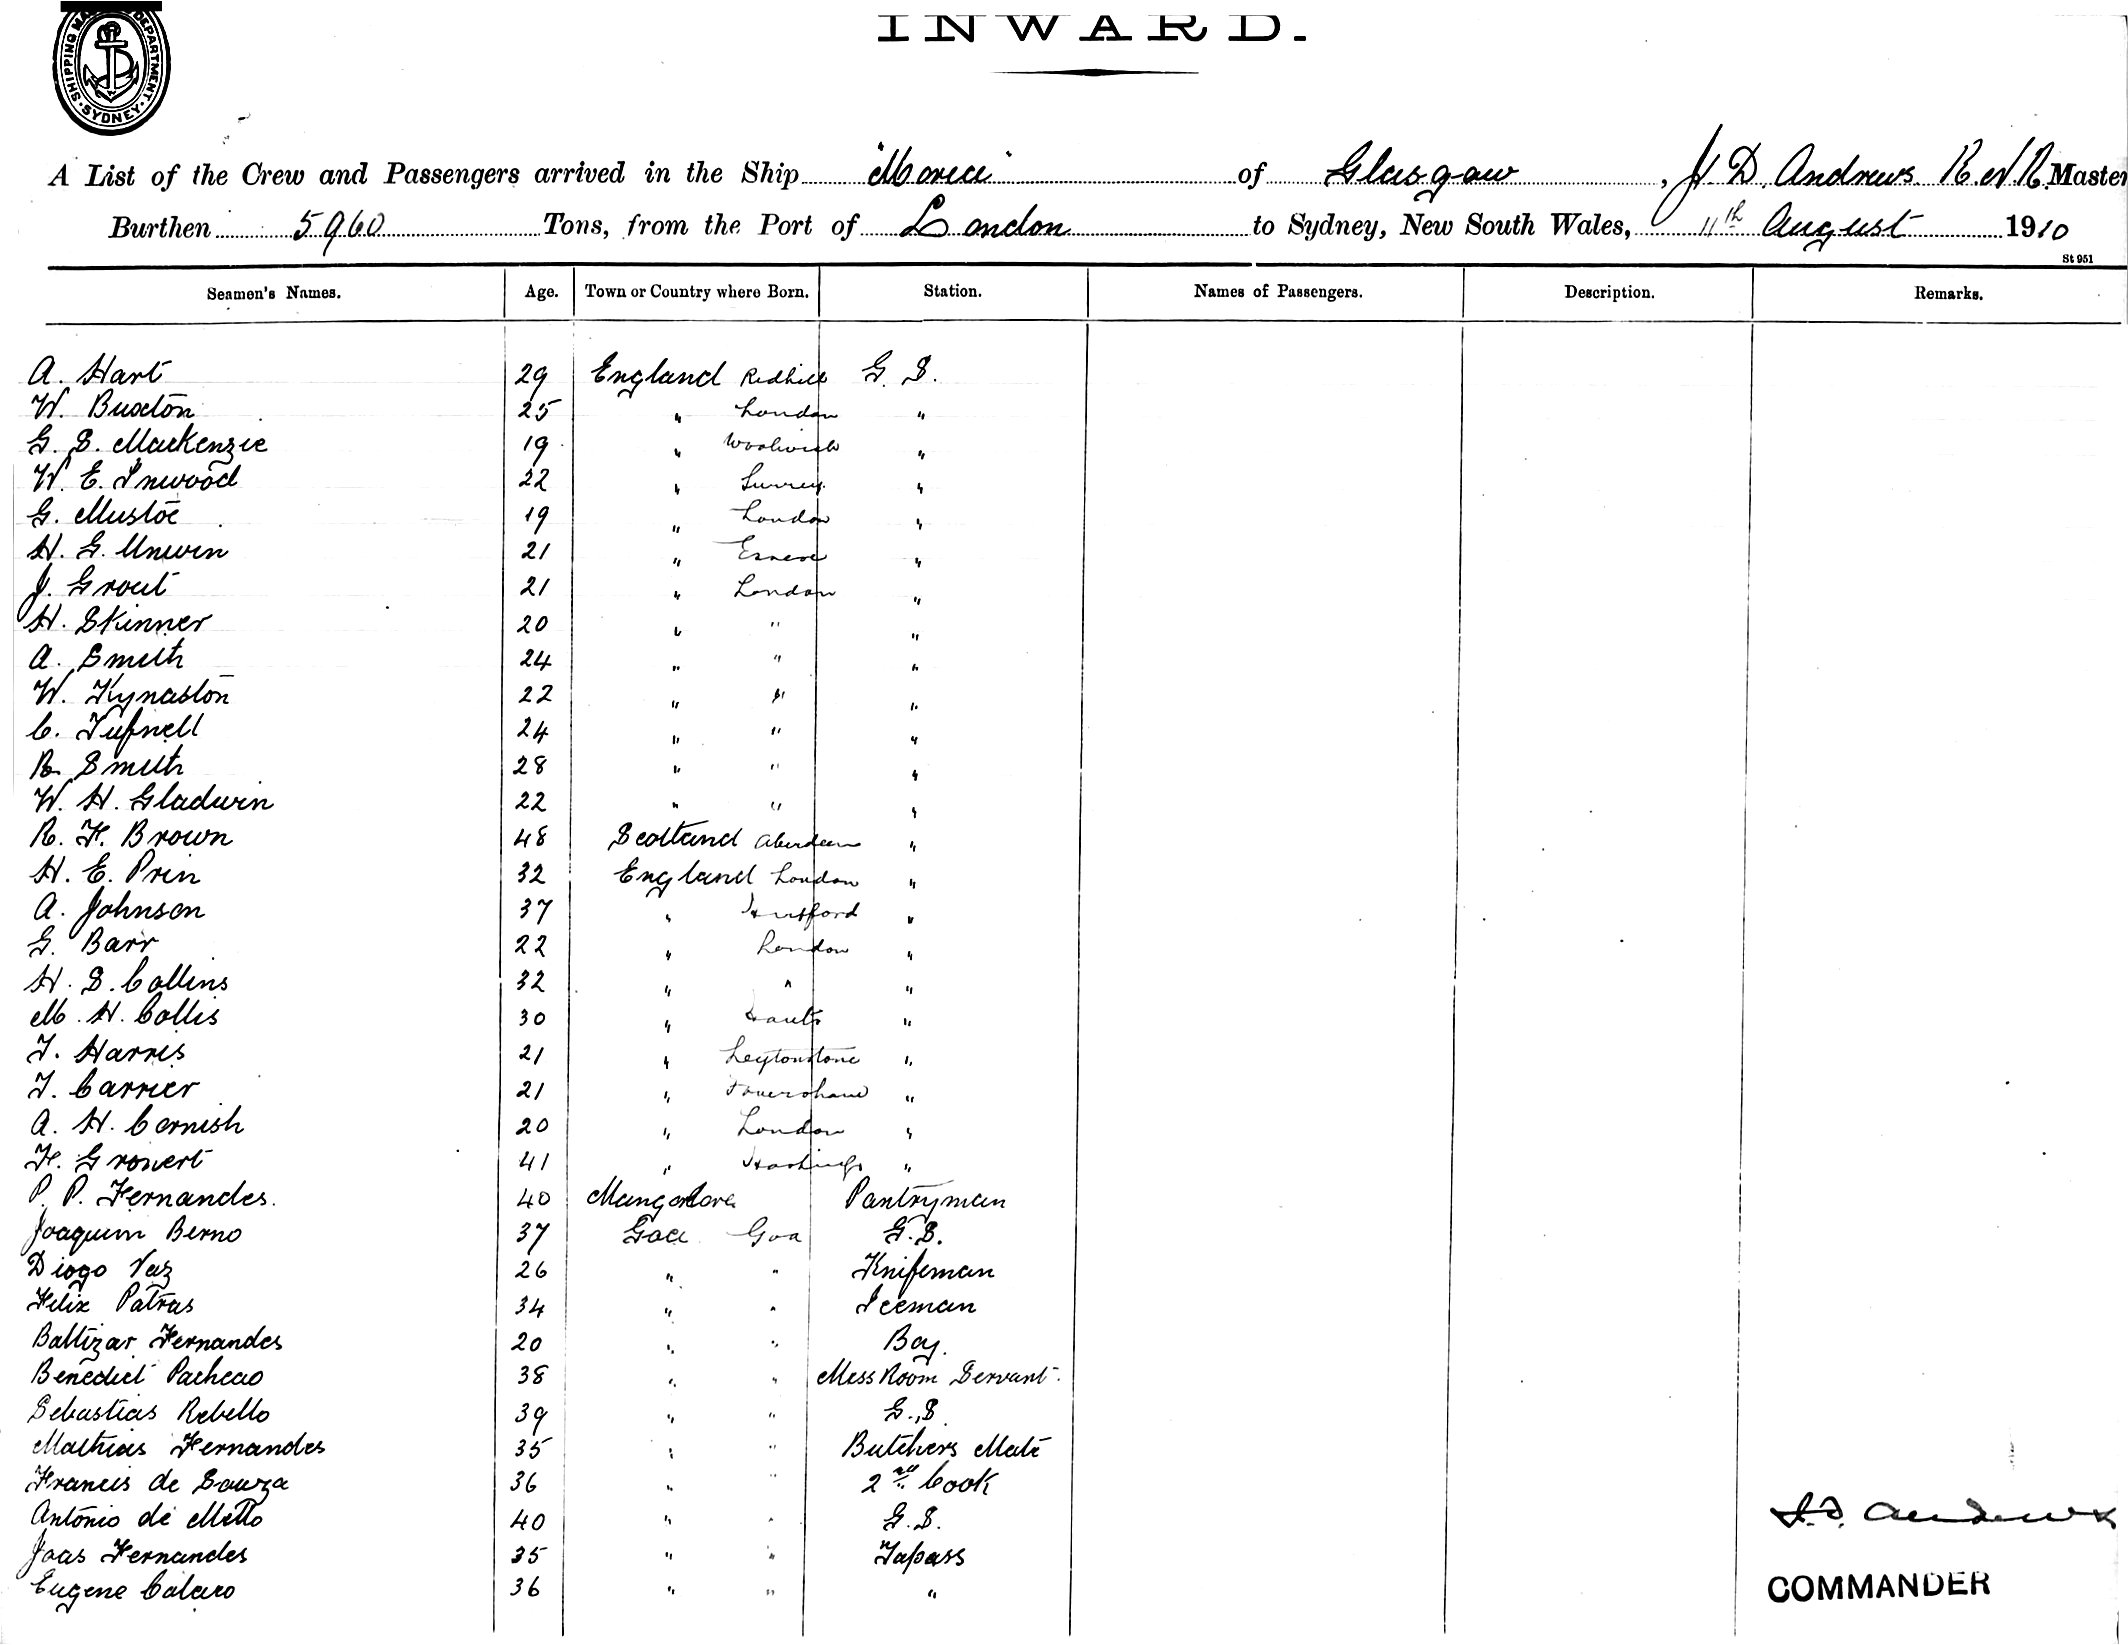 SHIPPING MA DEPARTMENT. SYDNEY
INWARD.
A List of the Crew and Passengers arrived in the Ship "Morea" of Glasgow, J. D. Andrews R.N.R. Master
Burthen 5960 Tons, from the Port of London to Sydney, New South Wales, 11th August 1910
St 951
Seamen's Names. Age. Town or Country where Born. Station. Names of Passengers. Description. Remarks.
A. Hart 29 England Redhill G. S.
W. Buxton 25 " London "
G. S. Mackenzie 19 " Woolwich "
W. E. Inwood 22 " Surrey "
G. Mustoe 19 " London "
H. G. Unwin 21 " Essex "
J. Grout 21 " London "
H. Skinner 20 " " "
A. Smith 24 " " "
W. Kynaston 22 " " "
C. Tufnell 24 " " "
R. Smith 28 " " "
W. H. Gladwin 22 " " "
R. F. Brown 48 Scotland Aberdeen "
H. E. Prin 32 England London "
A. Johnson 37 " "
G. Barr 22 " London "
H. S. Collins 32 " " "
M. H. Collis 30 " Hants "
T. Harris 21 " Leytonstone "
T. Carrier 21 " Faversham "
A. H. Cornish 20 " London "
F. Gronert 41 " Hastings "
P. P. Fernandes. 40 Pantryman
Joaquim Berno 37 Goa Goa G. S.
Diogo Vaz 26 " " Knifeman
Felix Patras 34 " " Iceman
Baltizar Fernandes 20 " " Boy.
Benedict Pacheco 38 " " Mess Room Servant.
Sebastias Rebello 39 " " G. S.
Mathias Fernandes 35 " " Butchers Mate
Francis de Souza 36 " " 2nd Cook
Antonio de Mello 40 " " G. S.
Joas Fernandes 35 " " Topass
Eugene Colaco 36 " " "
J. D. Andrews
COMMANDER